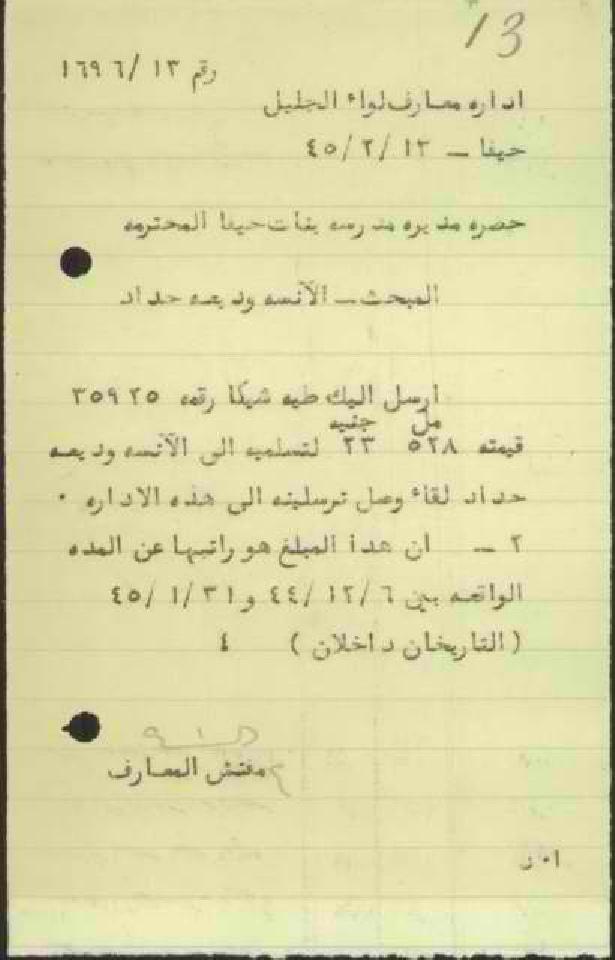 13
رقم ١٣ /١٦٩٦
اداره معارف لواء الجليل
حيفا – ١٣ /٢ /٤٥
حضره مديره مدرسه بنات حيفا المحترمه
المبحث – الآنسه وديعه حداد
ارسل اليك طيه شيكا رقمه ٣٥٩٢٥
مل جنيه
قيمته ٥٢٨ ٢٣ لتسلميه الى الآنسه وديعه
حداد لقاء وصل ترسلينه الى هذه الاداره ٠
٢ – ان هذا المبلغ هو راتبها عن المده
الواقعه بين ٦ /١٢ /٤٤ و ٣١ /١ /٤٥
( التاريخان داخلان ) ٤
مفتش المعارف